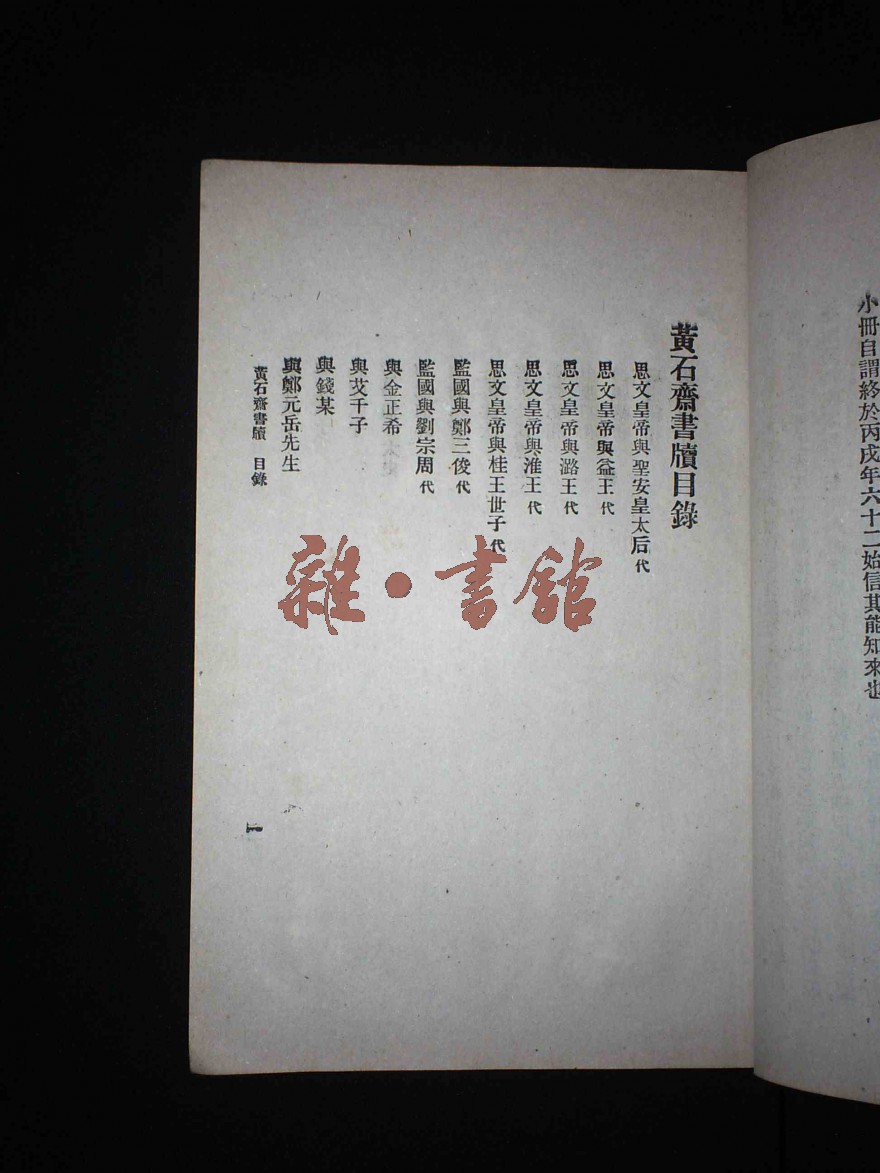 小冊自謂終於丙戌年六十二始信其能知來也
黃石齋書牘目錄
思文皇帝與聖安皇太后 代
思文皇帝與益王 代
思文皇帝與潞王 代
思文皇帝與淮王 代
思文皇帝與桂王世子 代
監國與鄭三俊 代
監國與劉宗周 代
與金正希
與艾千子
與錢某
與鄭元岳先生
黃石齋書牘 目錄
一
雜·書館